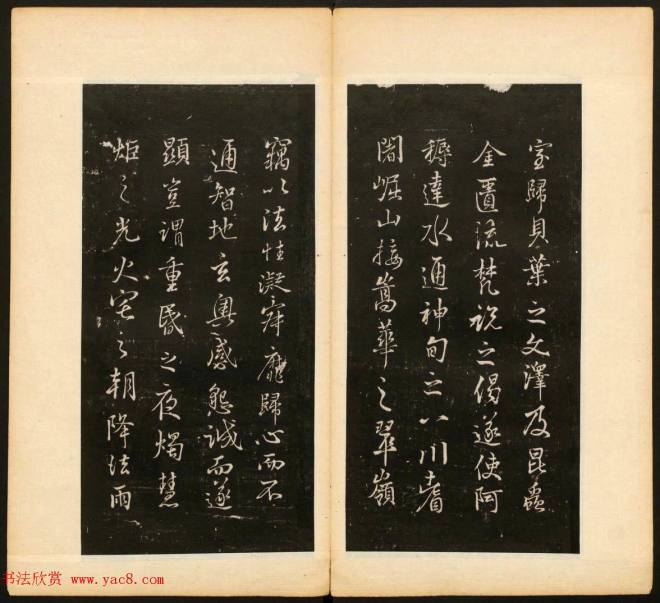 室歸貝葉之文澤及昆蟲
金匱流梵說之偈遂使阿
耨達水通神甸之八川耆
闍崛山接嵩華之翠嶺
竊以法性凝寂靡歸心而不
通智地玄奧感懇誠而遂
顯豈謂重昏之夜燭慧
炬之光火宅之朝降法雨
书法欣赏 www.yac8.com